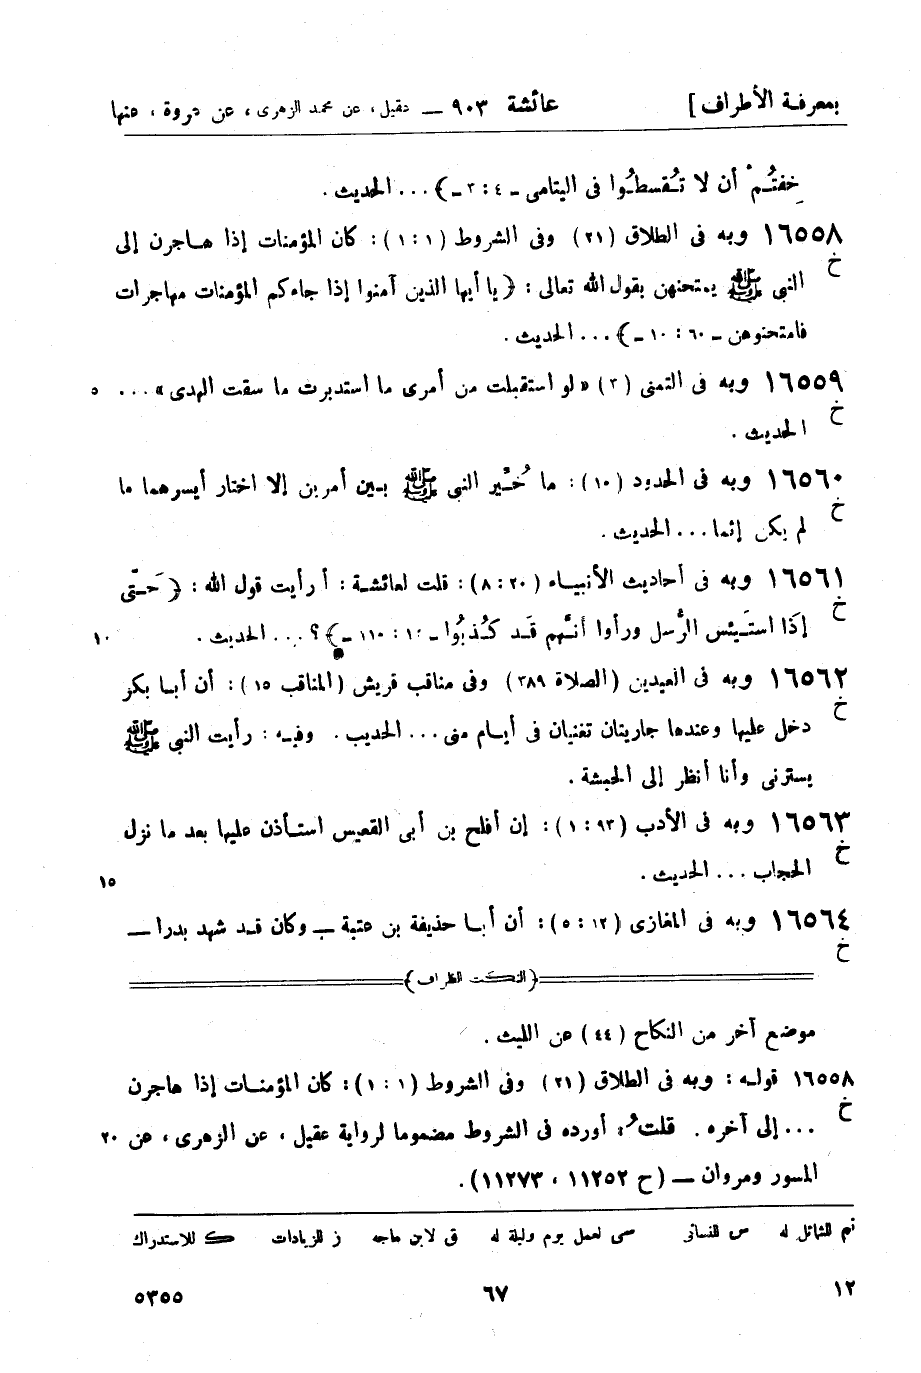 بمعرفة الأطراف] عائشة ٩٠٣ — عقيل، عن محمد الزهرى، عن عروة، عنها
خِفتُمْ أن لا تُقسطُوا فى اليتامى ـ ٤ : ٣ ـ﴾ ... الحديث .
١٦٥٥٨ وبه فى الطلاق (٢١) وفى الشروط (١ : ١) : كان المؤمنات إذا هاجرن إلى
خ
النبى ﷺ يمتحنهن بقول الله تعالى : ﴿يا أيها الذين آمنوا إذا جاءكم المؤمنات مهاجرات
فامتحنوهن ـ ٦٠ : ١٠ ـ﴾ ... الحديث .
١٦٥٥٩ وبه فى التمنى (٣) «لو استقبلت من أمرى ما استدبرت ما سقت الهدى» ... ٥
خ
الحديث .
١٦٥٦٠ وبه فى الحدود (١٠) : ما خُيِّر النبى ﷺ بين أمرين إلا اختار أيسرهما ما
خ
لم يكن إثما ... الحديث .
١٦٥٦١ وبه فى أحاديث الأنبياء (٢٠ : ٨) : قلت لعائشة : أرأيت قول الله : ﴿حَتّى
خ
إذَا استَيئس الرُّسل ورأوا أنَّهم قَد كُذبُوا ـ ١٢ : ١١٠ ـ﴾ ؟ ... الحديث . ١٠
١٦٥٦٢ وبه فى العيدين (الصلاة ٣٨٩) وفى مناقب قريش (المناقب ١٥) : أن أبا بكر
خ
دخل عليها وعندها جاريتان تغنيان فى أيام منى ... الحديث . وفيه : رأيت النبى ﷺ
يسترنى وأنا أنظر إلى الحبشة .
١٦٥٦٣ وبه فى الأدب (٩٣ : ١) : إن أفلح بن أبى القعيس استأذن عليها بعد ما نزل
خ
الحجاب ... الحديث . ١٥
١٦٥٦٤ وبه فى المغازى (١٢ : ٥) : أن أبا حذيفة بن عتبة — وكان قد شهد بدرا —
خ
﴿النكت الظراف﴾
موضع آخر من النكاح (٤٤) عن الليث .
١٦٥٥٨ قوله : وبه فى الطلاق (٢١) وفى الشروط (١ : ١) : كان المؤمنات إذا هاجرن
خ
... إلى آخره . قلتُ : أورده فى الشروط مضموما لرواية عقيل ، عن الزهرى ، عن ٢٠
المسور ومروان — (ح ١١٢٥٢ ، ١١٢٧٣) .
تم للشمائل له س للنسائى سى لعمل يوم وليلة له ق لابن ماجه ز للزيادات ك للاستدراك
١٢ ٦٧ ٥٣٥٥